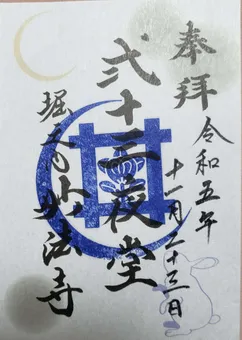 奉拝
令和五年
十一月二十三日
弐十三夜堂
堀之内 妙法寺